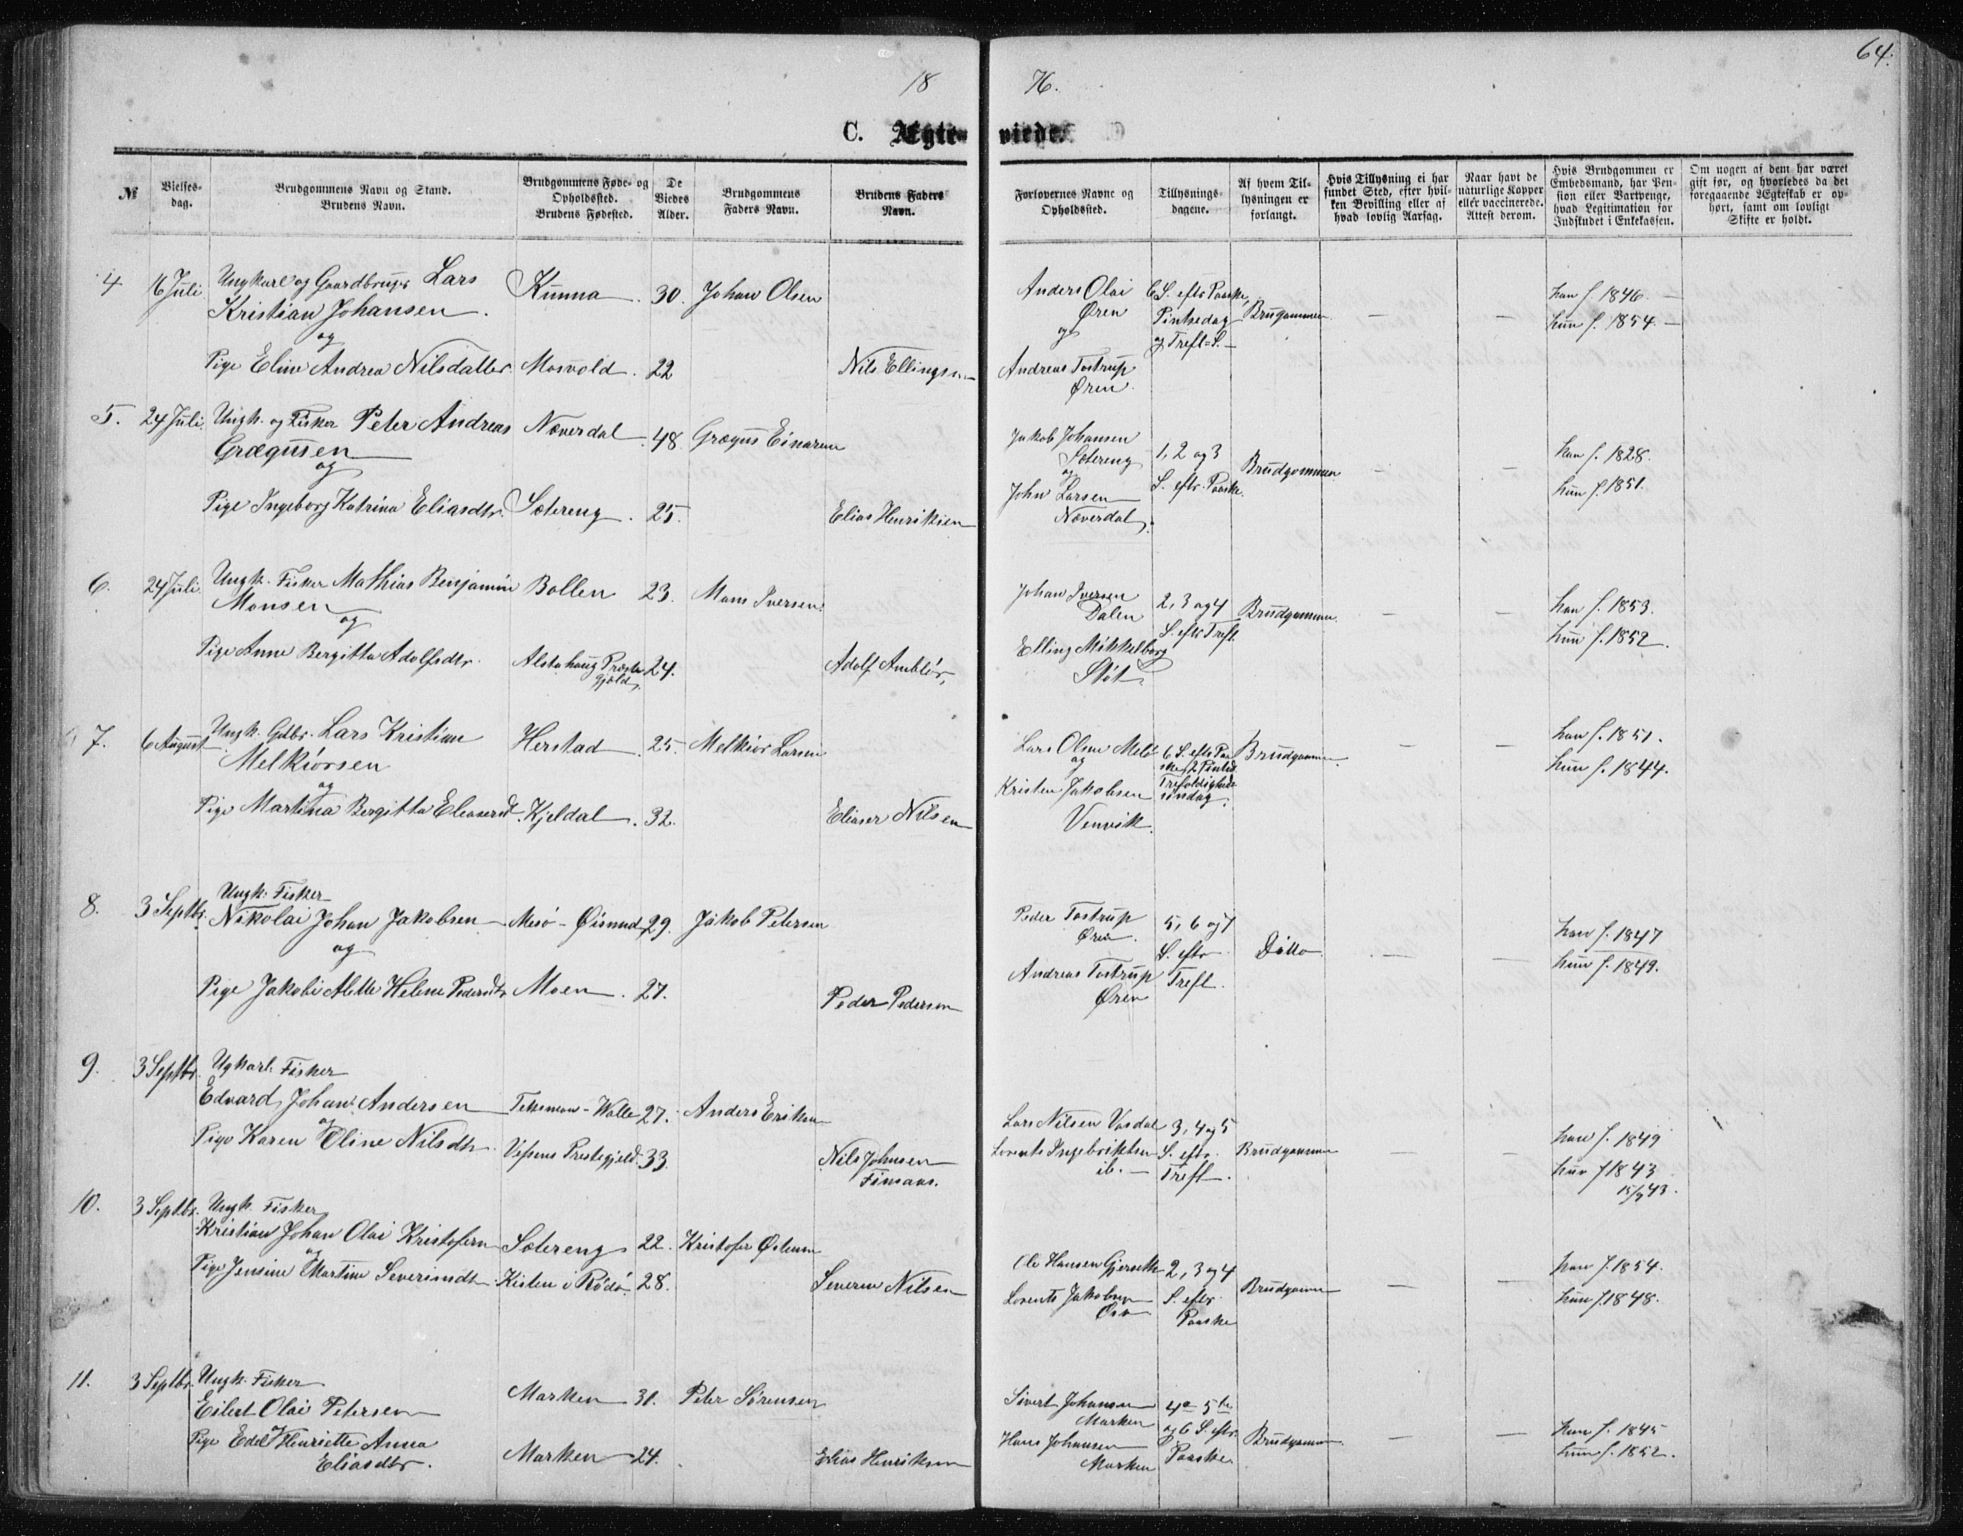 64.
18 76.
C. Ægte- viede.
№
Vielses-
dag.
Brudgommens Navn og Stand.
Brudens Navn.
Brudgommens Føde- og
Opholdsted.
Brudens Fødested.
De
Viedes
Alder.
Brudgommens
Faders Navn.
Brudens Faders
Navn.
Forlovernes Navne og
Opholdssted.
Tillysnings-
dagene.
Af hvem Til-
lysningen er
forlangt.
Hvis Tillysning ei har
fundet Sted, efter hvil-
ken Bevilling eller af
hvad lovlig Aarsag.
Naar havt de
naturlige Kopper
eller vaccinerede.
Attest derom.
Hvis Brudgommen er
Embedsmand, har Pen-
sion eller Vartpenge,
hvad Legitimation for
Indskudet i Enkekassen.
Om nogen af dem har været
gift før, og hvorledes da det
foregaaende Ægteskab er op-
hørt, samt om lovligt
Skifte er holdt.
4 16 Juli Ungkarl og Gaardbruger Lars
Kristian Johansen
Kunna 30. Johan Olsen
og
Pige Eline Andrea Nilsdatter Mosvold. 22 Nils Ellingsen
Anders Olai
Øren
og
Andreas Tostrup
Øren.
6 S. eftr Paaske,
Pintsedag
og Trefl. S.
Brudgommen
han f. 1846.
hun f. 1854.
5. 24 Juli. Ungk. og Fisker Peter Andreas
Grægusen
Næverdal 48. Grægus Einarsen
og
Pige Ingeborg Katrina Eliasdtr. Sætereng. 25. Elias Henriksen
Jakob Johansen
Sætereng
og
John Larsen
Næverdal.
1, 2 og 3
S. eftr. Paaske.
Brudgommen
han f. 1828.
hun f. 1851.
6. 24 Juli. Ungk. Fisker Mathias Benjamin
Monsen
Bollen 23. Mons Iversen
og
Pige Anne Bergitta Adolfsdtr. Alstahaug Præste
gjæld, 24. Adolf
Johan Iversen
Dalen
Elling Mikkelborg
Støt.
2, 3 og 4
S. eftr Trefl.
Brudgommen.
han f. 1853.
hun f. 1852.
7. 6 August Ungk. Gdbr. Lars Kristian
Melkiorsen
Herstad 25. Melkior Larsen
og
Pige Martina Bergitta Eleaserd. Kjeldal. 32. Elieser Nilsen
Lars Olsen
og
Kristen Jakobsen
Venvik.
6 S. eftr Paa
ske, 2 Pintsd.
Trefoldigheds
søndag.
Brudgommen.
han f. 1851.
hun f. 1844.
8. 3 Septbr. Ungk. Fisker
Nikolai Johan Jakobsen Mesø 29. Jakob Petersen
og
Pige Jakobi Alette Helene Pedersdtr Moen. 27. Peder Pedersen
Peder Tostrup
Øren.
Andreas Tostrup
Øren
5, 6 og 7
S. eftr
Trefl.
Ditto
han f. 1847
hun f. 1849.
9. 3 Septbr. Ugkarl. Fisker
Edvard Johan Andersen 27. Anders Eriksen
og
Pige Karen Oline Nilsdtr. Vefsens Prestegjeld. 33. Nils Johnsen
Lars Nilsen
Lorents Ingebriktsen
ib.
3, 4 og 5
S. eftr.
Trefl.
Brudgommen
han f. 1849
hun f 1843
15/9 43.
10. 3 Septbr. Ungk. Fisker
Kristian Johan Olai Kristofersen Sætereng 22. Kristofer Østensen
og
Pige Jensine Martine Severinsdtr. i Rødø. 28. Severin Nilsen
Ole Hansen Gjersvik
Lorents Jakobsen
2, 3 og 4
S. eftr.
Paaske
Brudgommen
han f. 1854.
hun f. 1848.
11. 3 Septbr. Ungk. Fisker
Eilert Olai Petersen
Marken 31. Peter Sørensen
og
Pige Edel Henriette Anna
Eliasdtr.
Marken 24. Elias Henriksen
Sivert Johansen
Marken
Hans Johansen
Marken
4de 5te
og 6 S. eftr.
Paaske.
Brudgommen.
han f. 1845
hun f. 1852.